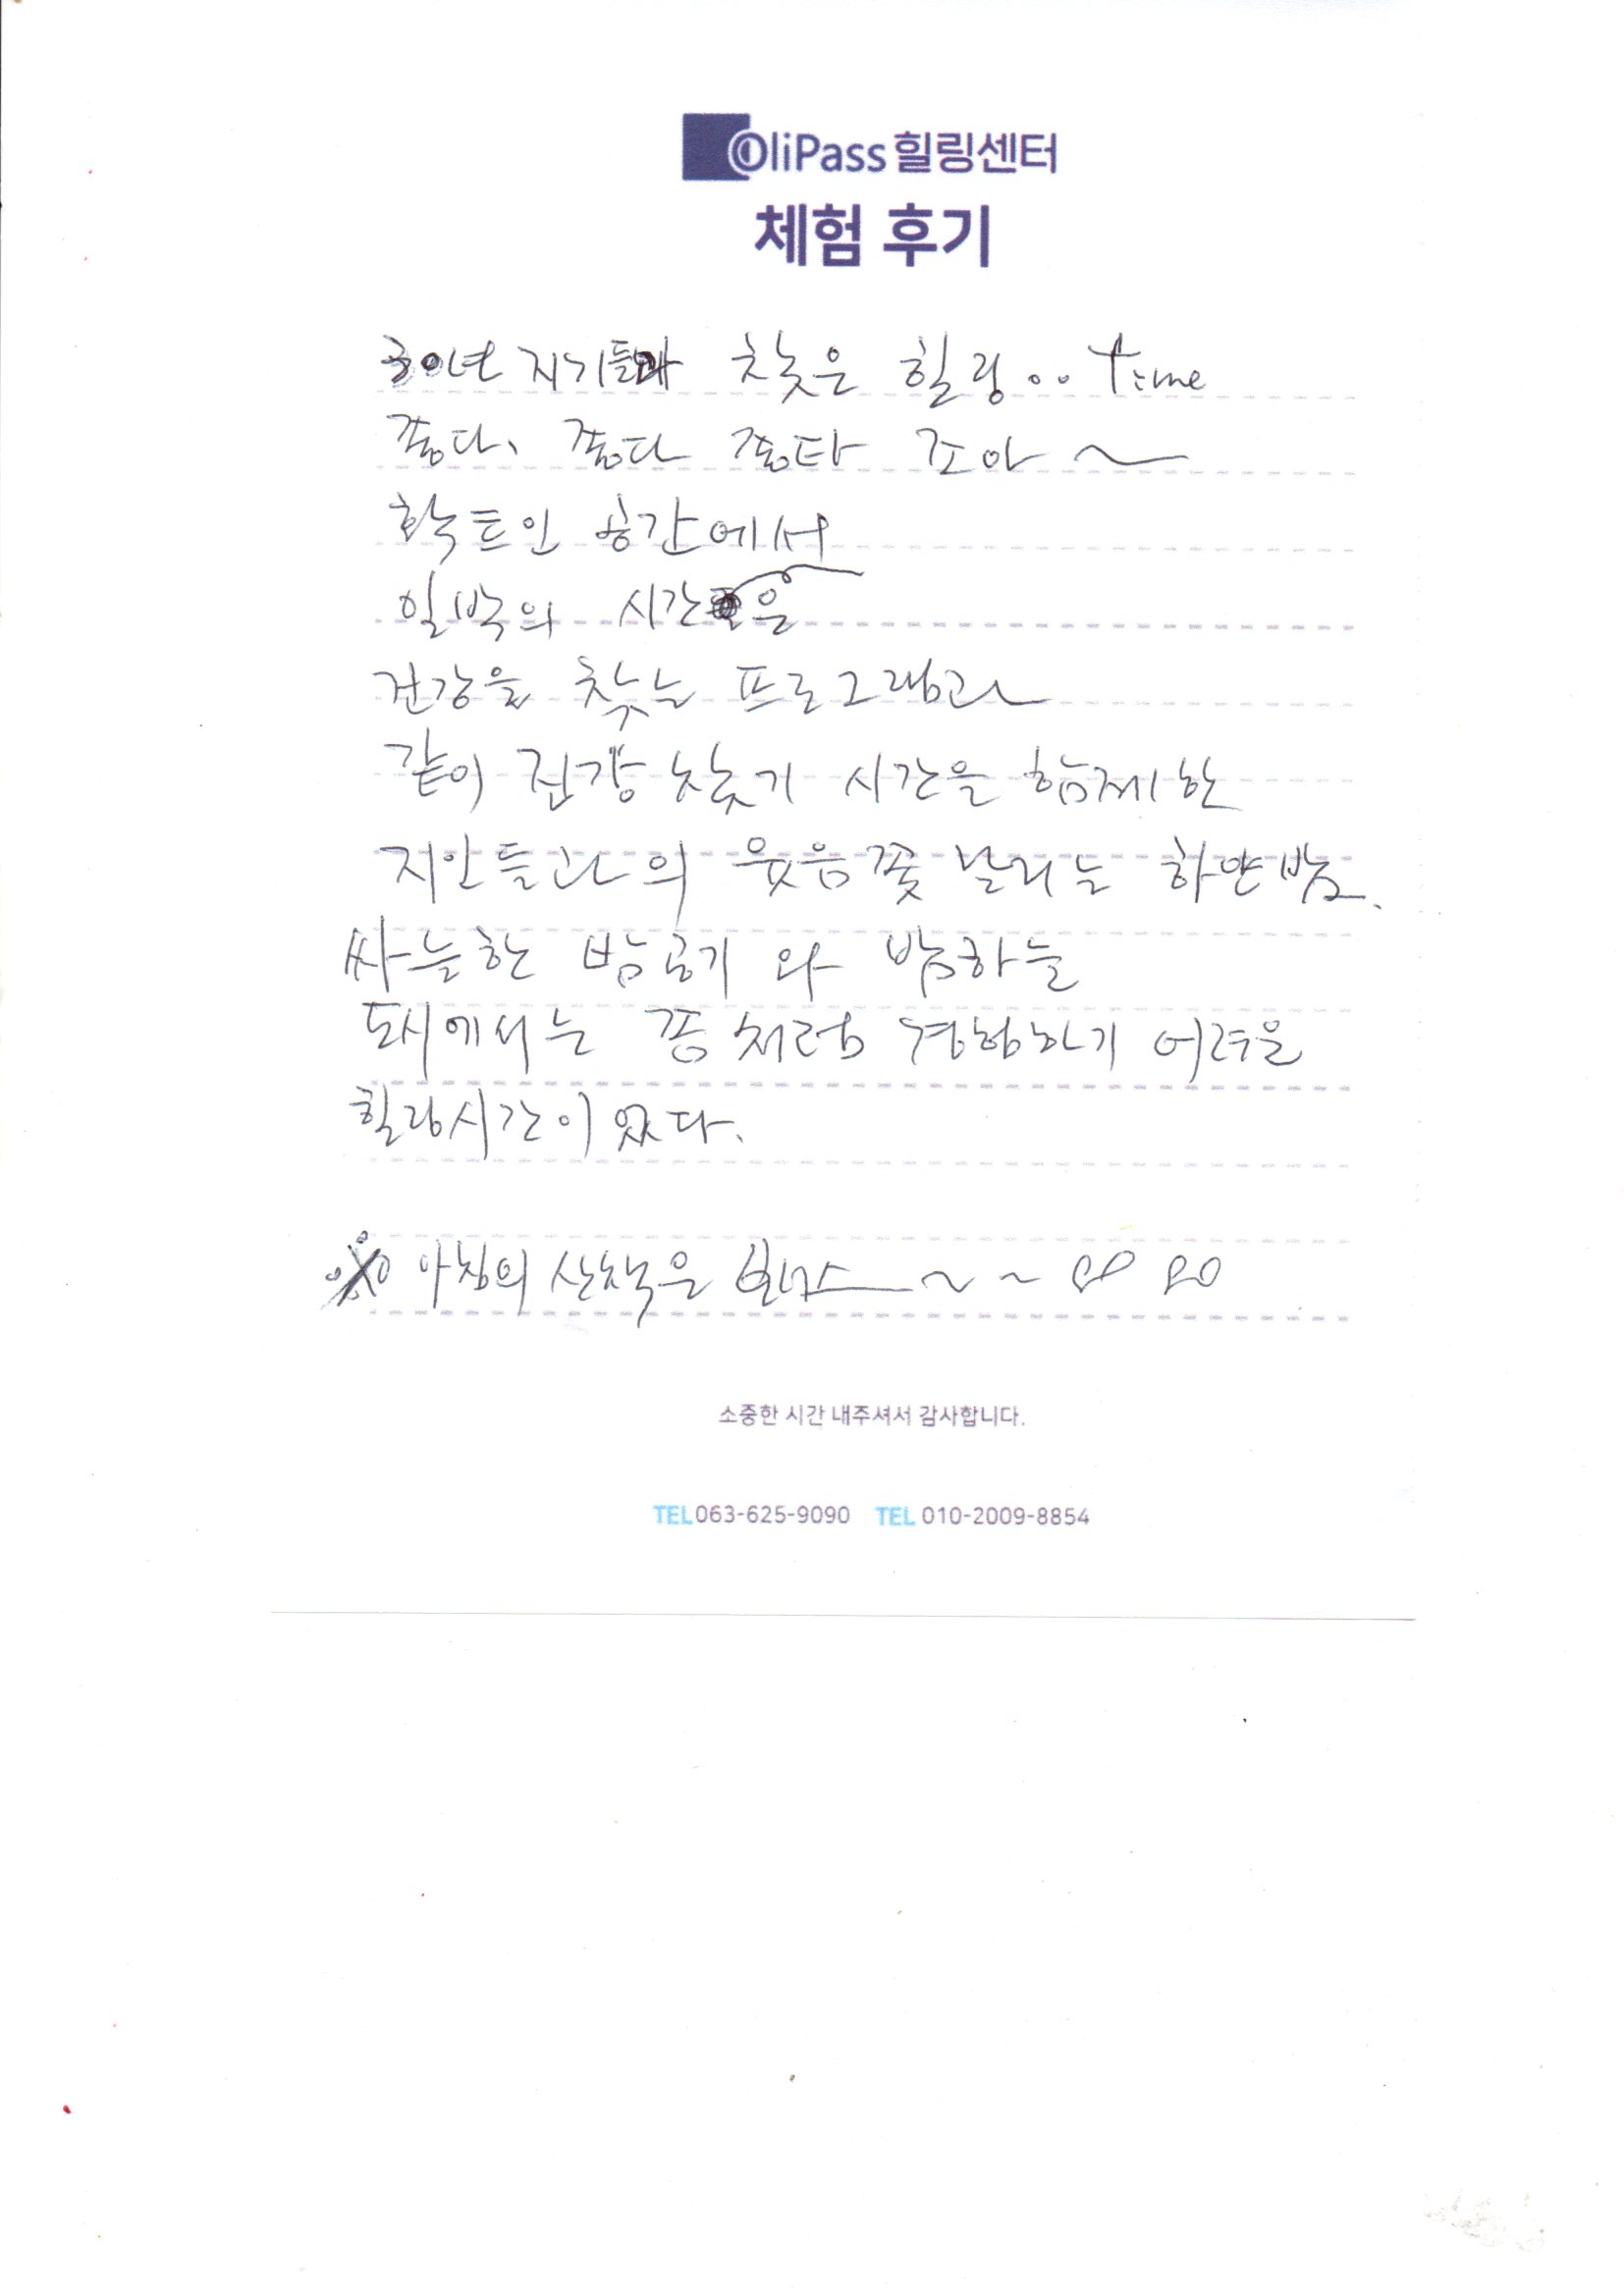 OliPass 힐링센터
체험 후기
30년 지기들과 찾은 힐링.. Time
좋다, 좋다 좋타 조아~
확 트인 공간에서
일박의 시간은
건강을 찾는 프로그램과
같이 건강 찾기 시간을 함께한
지인들과의 웃음꽃 날리는 하얀밤.
싸늘한 밤공기 와 밤하늘
도시에서는 좀처럼 경험하기 어려운
힐링시간이 었다.
※ 아침의 산책은 ~ ~
소중한 시간 내주셔서 감사합니다.
TEL 063-625-9090 TEL 010-2009-8854